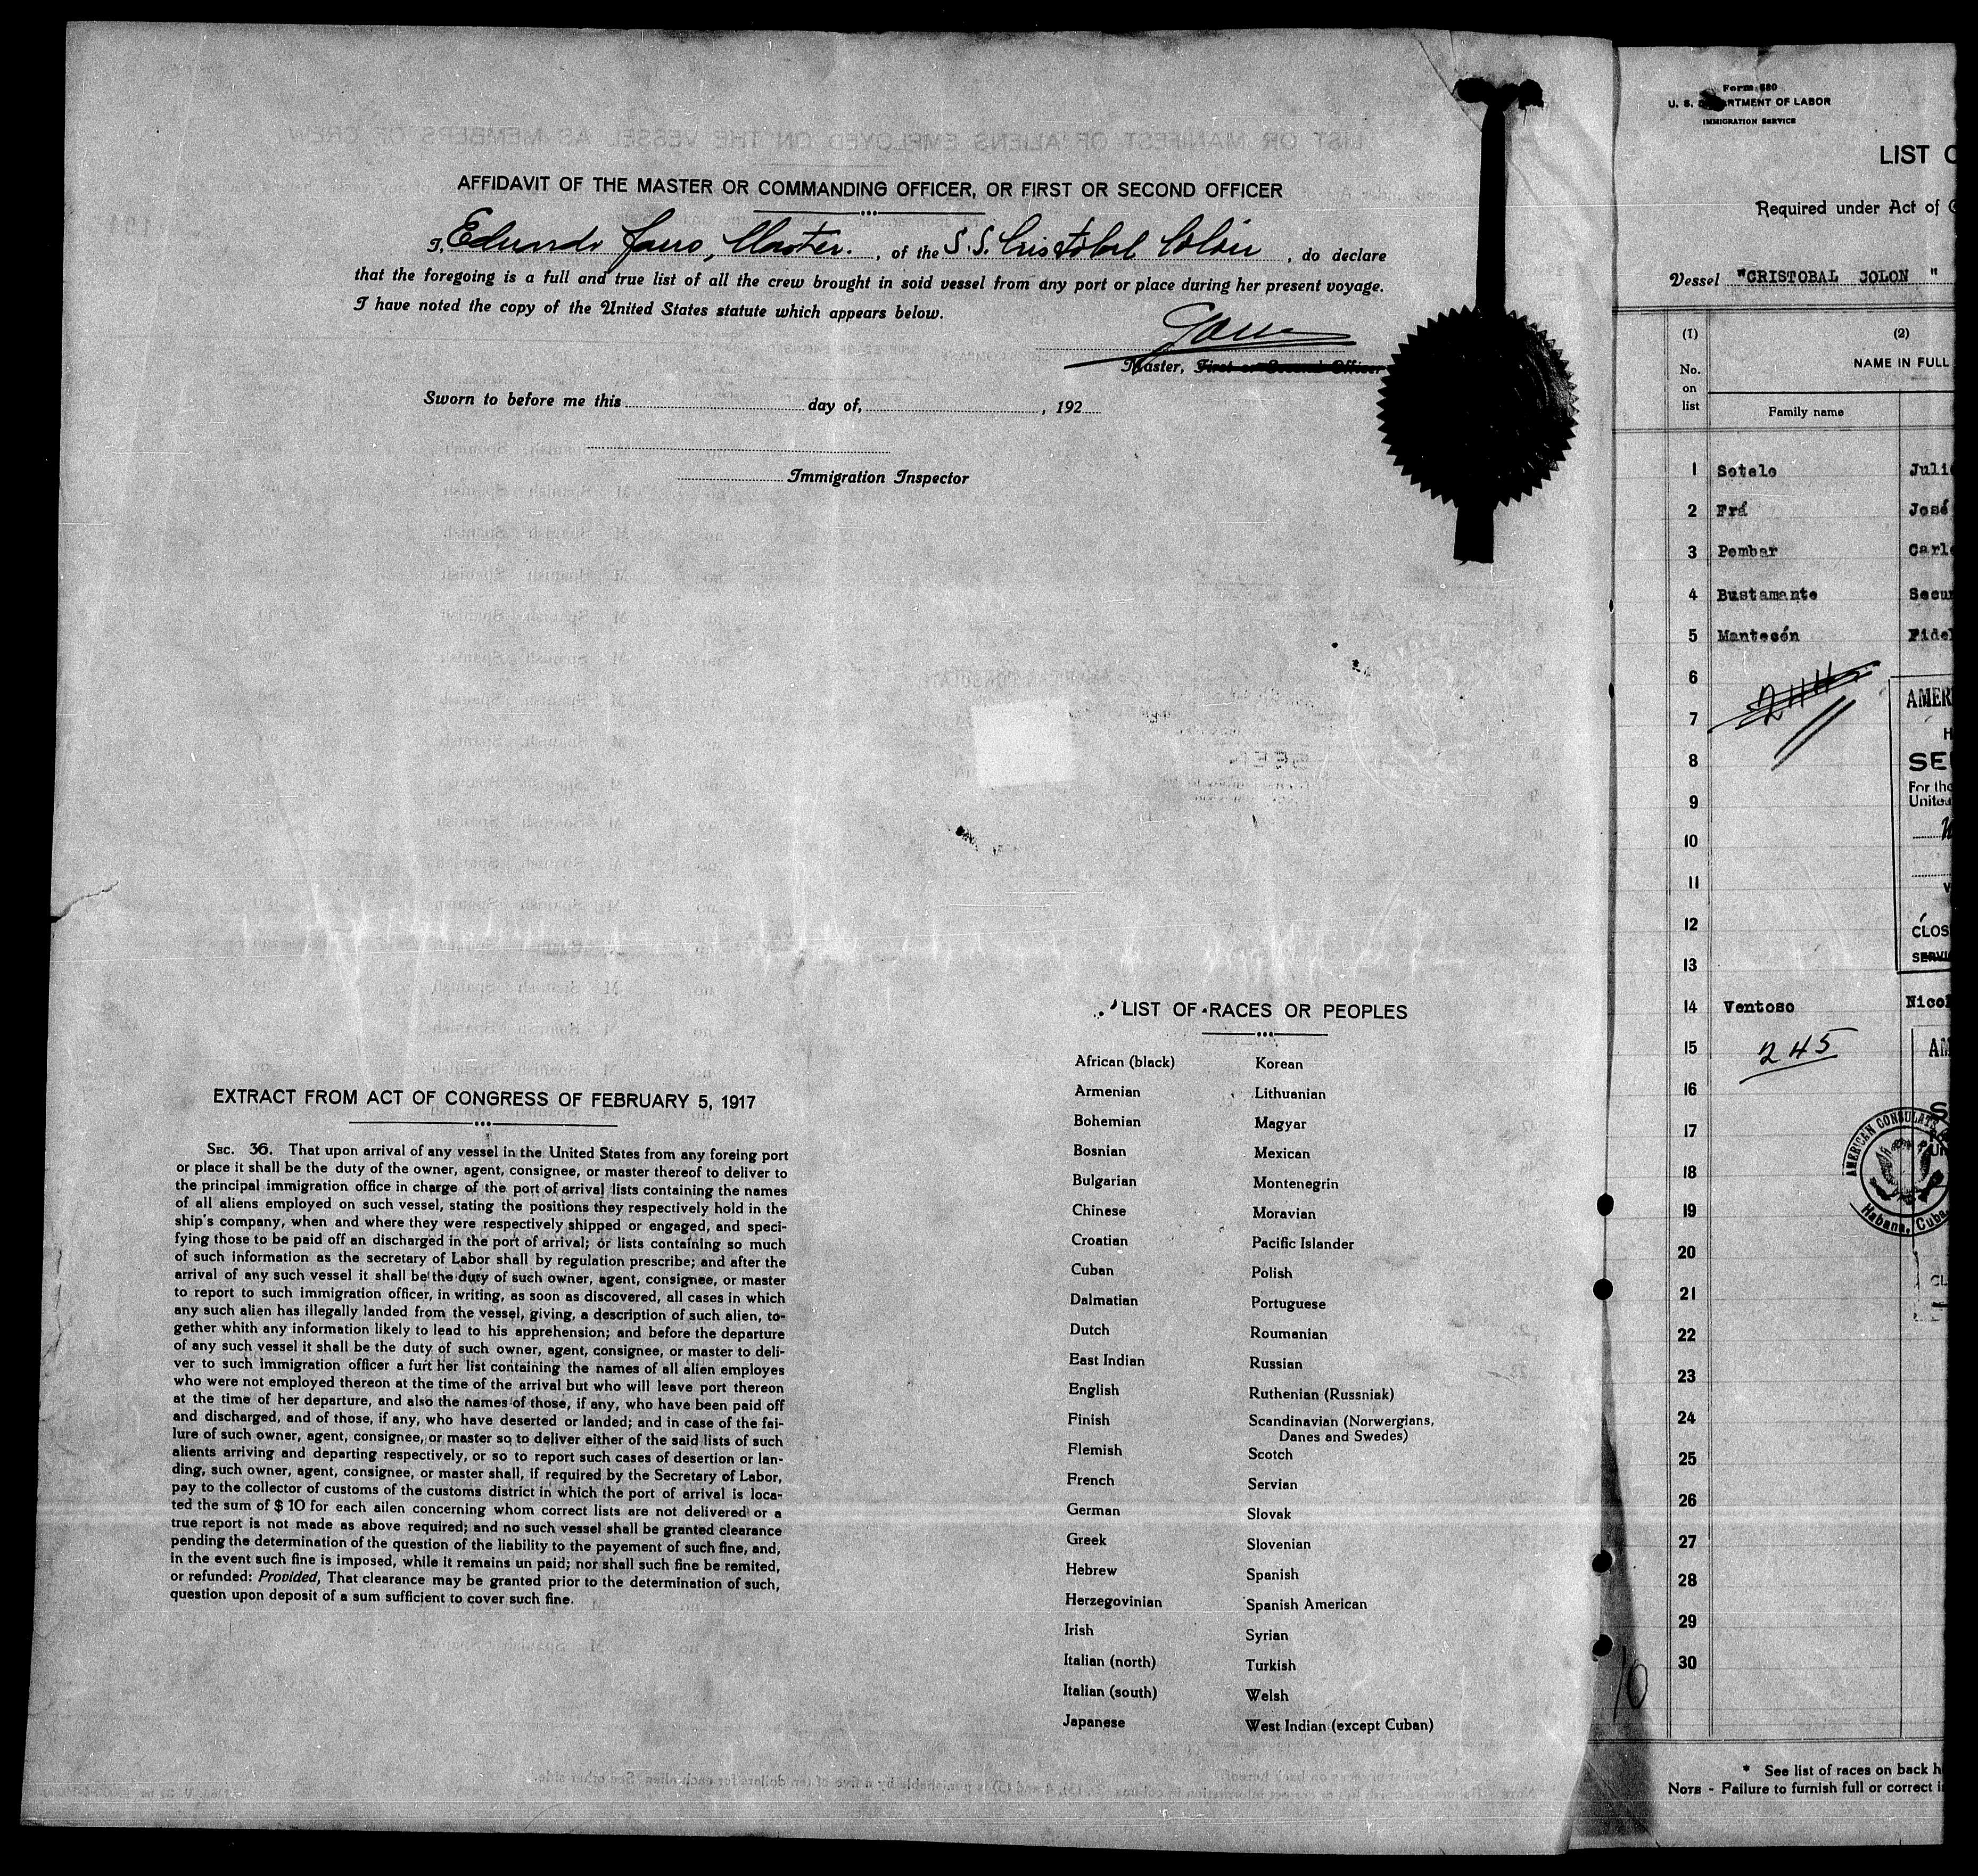 AFFIDAVIT OF THE MASTER OR COMMANDING OFFICER, OR FIRST OR SECOND OFFICER
I, Eduardo Fano, Master. , of the S.S. Cristobal Colón , do declare
that the foregoing is a full and true list of all the crew brought in soid vessel from any port or place during her present voyage.
I have noted the copy of the United States statute which appears below.
Master, First or Second Officer
Sworn to before me this day of, , 192
Immigration Inspector
EXTRACT FROM ACT OF CONGRESS OF FEBRUARY 5, 1917
SEC. 36. That upon arrival of any vessel in the United States from any foreing port
or place it shall be the duty of the owner, agent, consignee, or master thereof to deliver to
the principal immigration office in charge of the port of arrival lists containing the names
of all aliens employed on such vessel, stating the positions they respectively hold in the
ship's company, when and where they were respectively shipped or engaged, and speci-
fying those to be paid off an discharged in the port of arrival; or lists containing so much
of such information as the secretary of Labor shall by regulation prescribe; and after the
arrival of any such vessel it shall be the duty of such owner, agent, consignee, or master
to report to such immigration officer, in writing, as soon as discovered, all cases in which
any such alien has illegally landed from the vessel, giving, a description of such alien, to-
gether whith any information likely to lead to his apprehension; and before the departure
of any such vessel it shall be the duty of such owner, agent, consignee, or master to deli-
ver to such immigration officer a furt her list containing the names of all alien employes
who were not employed thereon at the time of the arrival but who will leave port thereon
at the time of her departure, and also the names of those, if any, who have been paid off
and discharged, and of those, if any, who have deserted or landed; and in case of the fai-
lure of such owner, agent, consignee, or master so to deliver either of the said lists of such
alients arriving and departing respectively, or so to report such cases of desertion or lan-
ding, such owner, agent, consignee, or master shall, if required by the Secretary of Labor,
pay to the collector of customs of the customs district in which the port of arrival is loca-
ted the sum of $ 10 for each ailen concerning whom correct lists are not delivered or a
true report is not made as above required; and no such vessel shall be granted clearance
pending the determination of the question of the liability to the payement of such fine, and,
in the event such fine is imposed, while it remains un paid; nor shall such fine be remited,
or refunded: Provided, That clearance may be granted prior to the determination of such,
question upon deposit of a sum sufficient to cover such fine.
LIST OF RACES OR PEOPLES
African (black) Korean
Armenian Lithuanian
Bohemian Magyar
Bosnian Mexican
Bulgarian Montenegrin
Chinese Moravian
Croatian Pacific Islander
Cuban Polish
Dalmatian Portuguese
Dutch Roumanian
East Indian Russian
English Ruthenian (Russniak)
Finish Scandinavian (Norwergians,
Danes and Swedes)
Flemish Scotch
French Servian
German Slovak
Greek Slovenian
Hebrew Spanish
Herzegovinian Spanish American
Irish Syrian
Italian (north) Turkish
Italian (south) Welsh
Japanese West Indian (except Cuban)
Form 680
U. S. DEPARTMENT OF LABOR
IMMIGRATION SERVICE
LIST O
Required under Act of C
Vessel "CRISTOBAL COLON "
(1) (2)
No. on list NAME IN FULL
Family name
1 Sotelo Juli
2 Frá José
3 Pembar Carl
4 Bustamante Secun
5 Mantecón Fidel
6
7 AMER
8 SE
For the
9 United
10
11
12 CLOS
13 SERVI
14 Ventoso Nicol
15 245 AM
16
17
18 AMERICAN CONSULATE
19 Habana, Cuba
20
21
22
23
24
25
26
27
28
29
30
10
* See list of races on back h
NOTE - Failure to furnish full or correct i